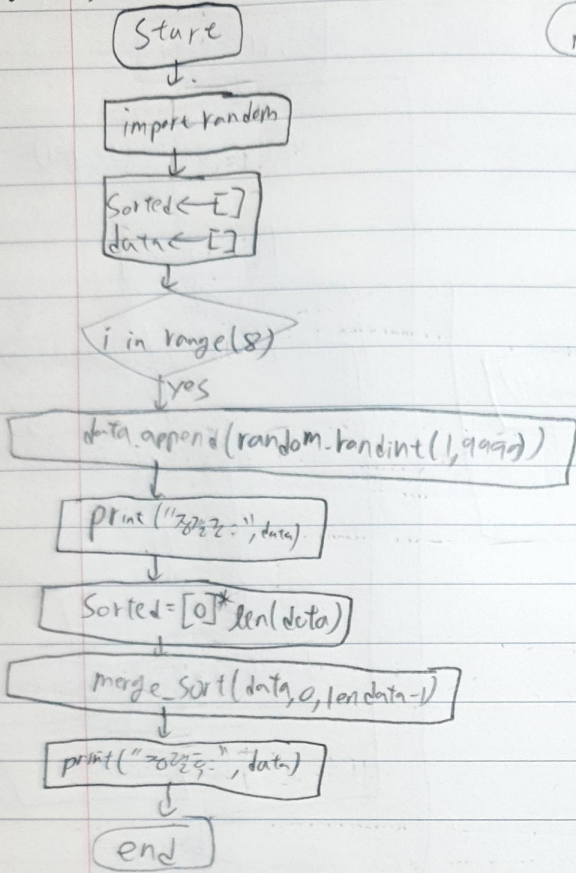 Start
import random
Sorted ← []
data ← []
i in range(8)
yes
data.append(random.randint(1,9999))
print("정렬전:",data)
Sorted=[0]*len(data)
merge_sort(data,0,lendata-1)
print("정렬후:",data)
end